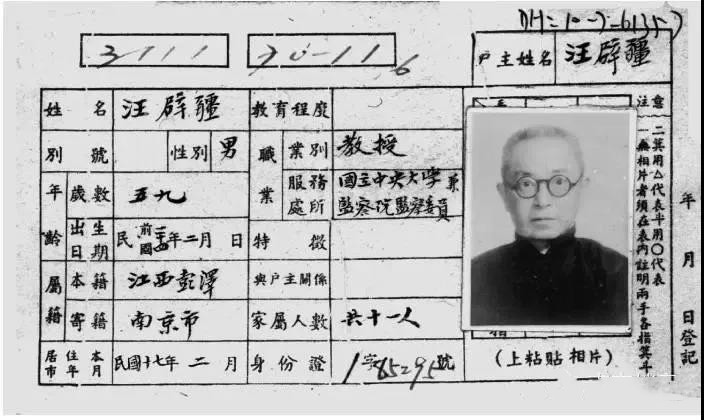 3711
30-11
6
戶主姓名 汪辟疆
姓名 汪辟疆 教育程度
別號 性別 男 職業 業別 教授
服務處所 國立中央大學兼監察院監察委員
年齡 歲數 五九
出生日期 民前 年二月 日 特徵
屬籍 本籍 江西彭澤 與戶主關係
寄籍 南京市 家屬人數 共十一人
居住本市年月 民國十七年二月 身份證 1字85295號
(上粘貼相片)
注意
一無相片者須在表內註明兩手各指箕斗
二箕用△代表斗用〇代表
年 月 日登記